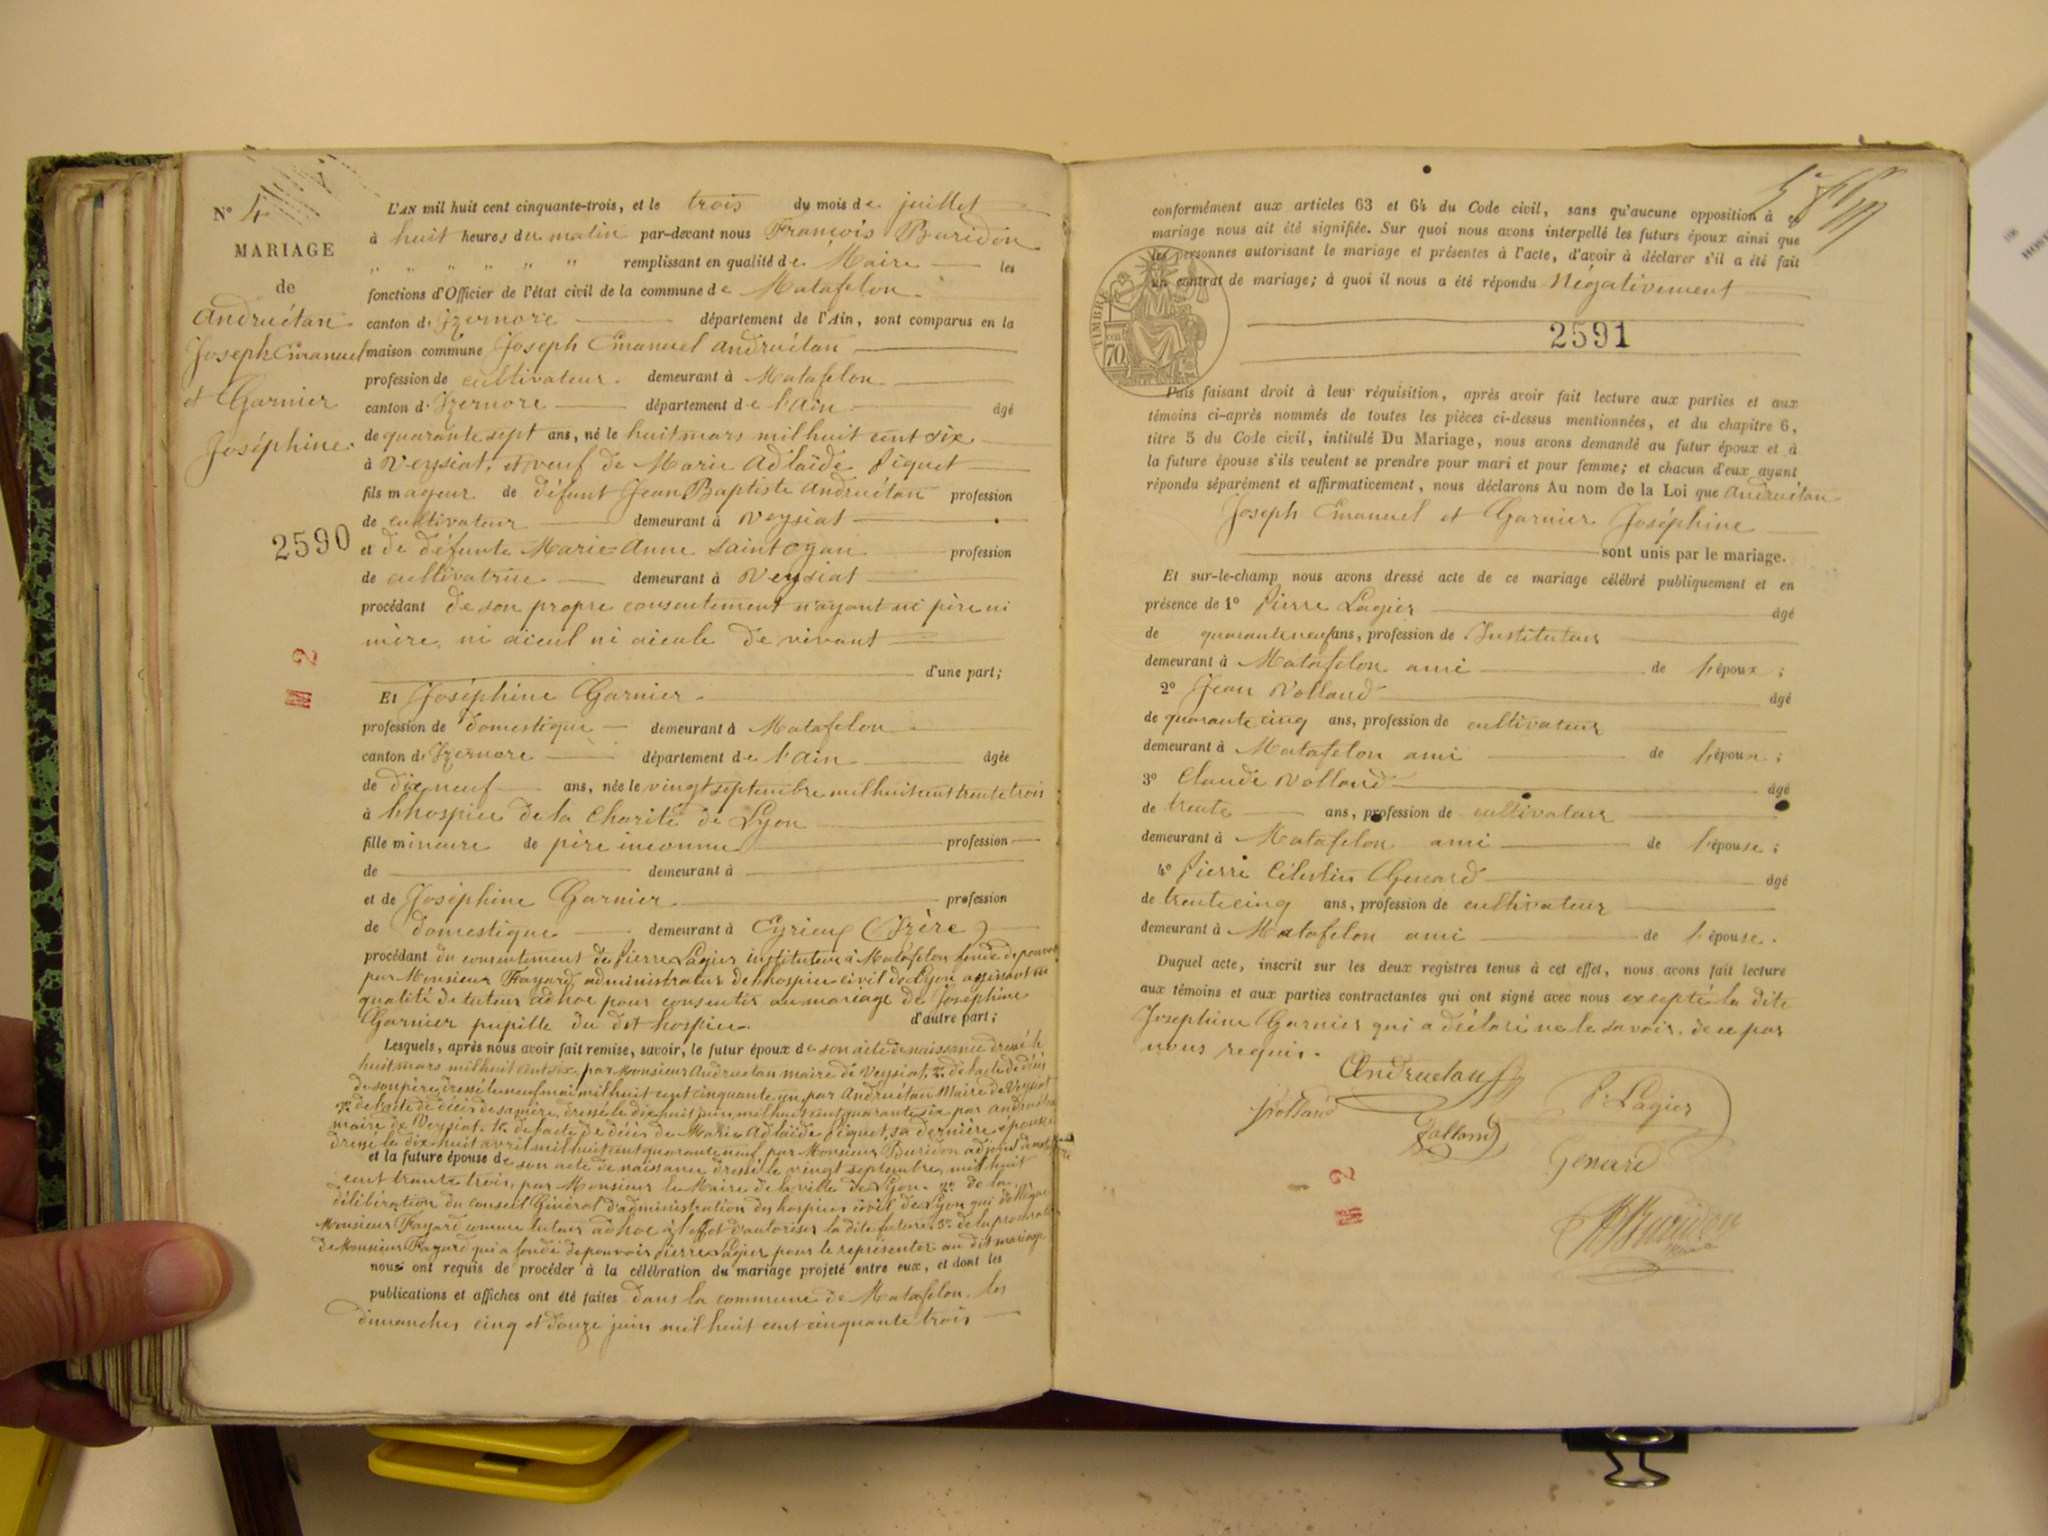 N° 4
MARIAGE
de
Andruétan
Joseph Emanuel
et Garnier
Joséphine.
2590
M 2
L'AN mil huit cent cinquante-trois, et le trois du mois de juillet
à huit heures du matin par-devant nous François Buridon
" " " " " " remplissant en qualité de Maire les
fonctions d'Officier de l'état civil de la commune de Matafelon.
canton d'Izernore département de l'Ain, sont comparus en la
maison commune Joseph Emanuel Andruétan
profession de cultivateur. demeurant à Matafelon
canton d'Izernore département de l'ain âgé
de quarante sept ans, né le huit mars mil huit cent six
à Veysiat, et veuf de Marie Adlaïde Piquet
fils mageur de défunt Jean Baptiste Andruétan profession
de cultivateur demeurant à Veysiat
et de défunte Marie Anne Saint oyan profession
de cultivatrice demeurant à Veysiat
procédant de son propre consentement n'ayant ni père ni
mère, ni aïeul ni aïeule de vivant
d'une part;
Et Joséphine Garnier.
profession de domestique demeurant à Matafelon
canton d'Izernore département de l'ain âgée
de dix neuf ans, née le vingt septembre mil huit cent trente trois
à l'hospice de la Charité de Lyon
fille mineure de père inconnu profession
de demeurant à
et de Joséphine Garnier profession
de domestique demeurant à Eyrieu (Isère)
procédant du consentement de Pierre Lagier instituteur à Matafelon fondé de pouvoir
par Monsieur Fayard, administrateur de l'hospice civil de Lyon agissant en
qualité de tuteur ad hoc pour consentir au mariage de Joséphine
Garnier pupille du dit hospice. d'autre part;
Lesquels, après nous avoir fait remise, savoir, le futur époux de son acte de naissance dressé le
huit mars mil huit cent six, par Monsieur Andruetan maire de Veysiat, 2° de l'acte de décès
de son père, dressé le neuf mai mil huit cent cinquante un par Andruétan Maire de Veysiat
3° de l'acte de décès de sa mère, dressé le dix huit juin mil huit cent quarante six par Andruétan
maire de Veysiat, 4° de l'acte de décès de Marie Adlaïde Piquet, sa dernière épouse
dressé le dix huit avril mil huit cent quarante neuf, par Monsieur Buridon adjoint
et la future épouse de son acte de naissance dressé le vingt septembre mil huit
cent trente trois, par Monsieur le Maire de la ville de Lyon. 2° de la
délibération du conseil Général d'administration des hospices civil de Lyon qui délègue
Monsieur Fayard comme tuteur ad hoc à l'effet d'autoriser la dite future 3° de la procuration
de Monsieur Fayard qui a fondé de pouvoir Pierre Lagier pour le représenter au dit mariage
nous ont requis de procéder à la célébration du mariage projeté entre eux, et dont les
publications et affiches ont été faites dans la commune de Matafelon. les
dimanches cinq et douze juin mil huit cent cinquante trois
conformément aux articles 63 et 64 du Code civil, sans qu'aucune opposition à ce
mariage nous ait été signifiée. Sur quoi nous avons interpellé les futurs époux ainsi que
les personnes autorisant le mariage et présentes à l'acte, d'avoir à déclarer s'il a été fait
un contrat de mariage; à quoi il nous a été répondu Négativement
TIMBRE
70
2591
Puis faisant droit à leur réquisition, après avoir fait lecture aux parties et aux
témoins ci-après nommés de toutes les pièces ci-dessus mentionnées, et du chapitre 6,
titre 5 du Code civil, intitulé Du Mariage, nous avons demandé au futur époux et à
la future épouse s'ils veulent se prendre pour mari et pour femme; et chacun d'eux ayant
répondu séparément et affirmativement, nous déclarons Au nom de la Loi que Andruétan
Joseph Emanuel et Garnier Joséphine
sont unis par le mariage.
Et sur-le-champ nous avons dressé acte de ce mariage célébré publiquement et en
présence de 1° Pierre Lagier âgé
de quarante neuf ans, profession de Instituteur
demeurant à Matafelon ami de l'époux;
2° Jean Volland âgé
de quarante cinq ans, profession de cultivateur
demeurant à Matafelon ami de l'époux;
3° Claude Volland âgé
de trente ans, profession de cultivateur
demeurant à Matafelon ami de l'épouse;
4° Pierre Célestin Genard âgé
de trente cinq ans, profession de cultivateur
demeurant à Matafelon ami de l'épouse.
Duquel acte, inscrit sur les deux registres tenus à cet effet, nous avons fait lecture
aux témoins et aux parties contractantes qui ont signé avec nous excepté la dite
Josephine Garnier qui a déclaré ne le savoir. de ce par
nous requis.
Andruetan
Volland P. Lagier
Volland
Genard
Buridon
maire
M 2